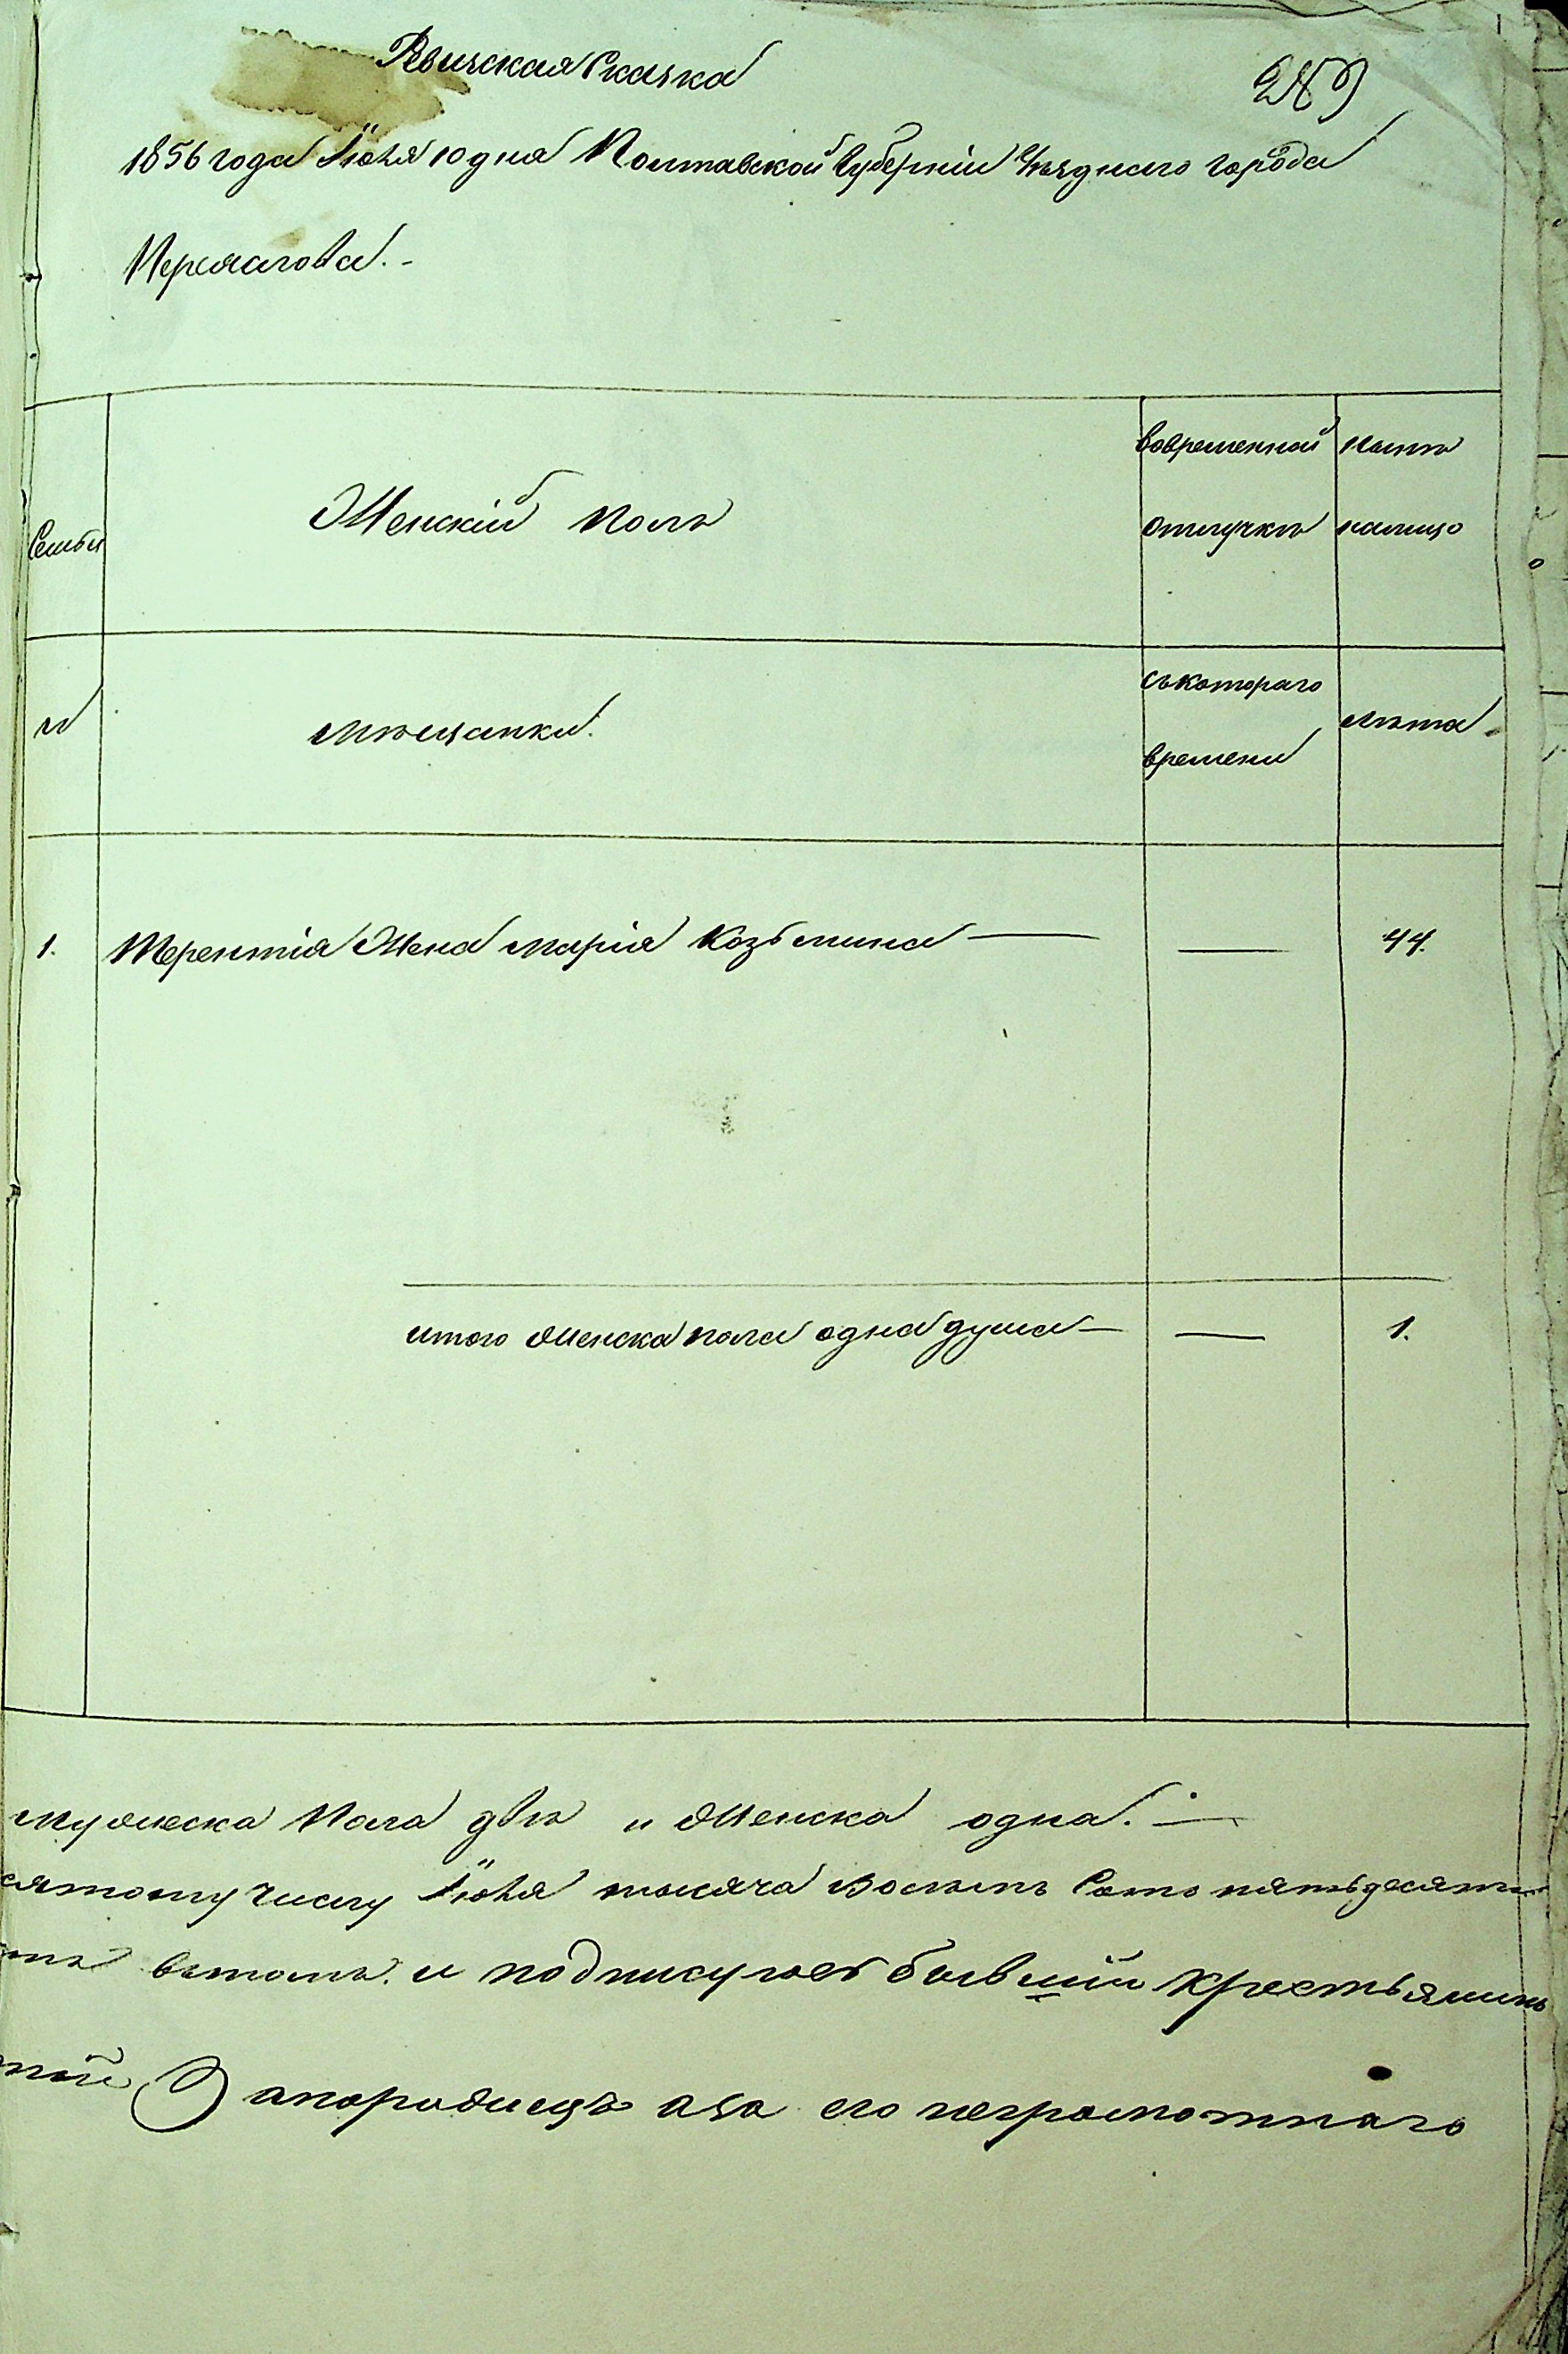 Ревизская Сказка
1856 года Июля 10 дня Полтавской Губерніи Уѣзднаго города
Переяслова.-
Семьи
Женскій полъ
вовременной
отлучкѣ
нынѣ
налицо
№
мѣщанки.
съкотораго
времени
лѣта
1. Терентія Жена Марія Козьмина — — 44.
итого женска пола одна душа — — 1.
мужеска Пола двѣ и Женска одна. —
сятому числу Июля тысяча восемь Сотъ пятьдесят
вътомъ. и подписуюсь бывшій крестьянинъ
Запорожецъ аза его неграмотнаго